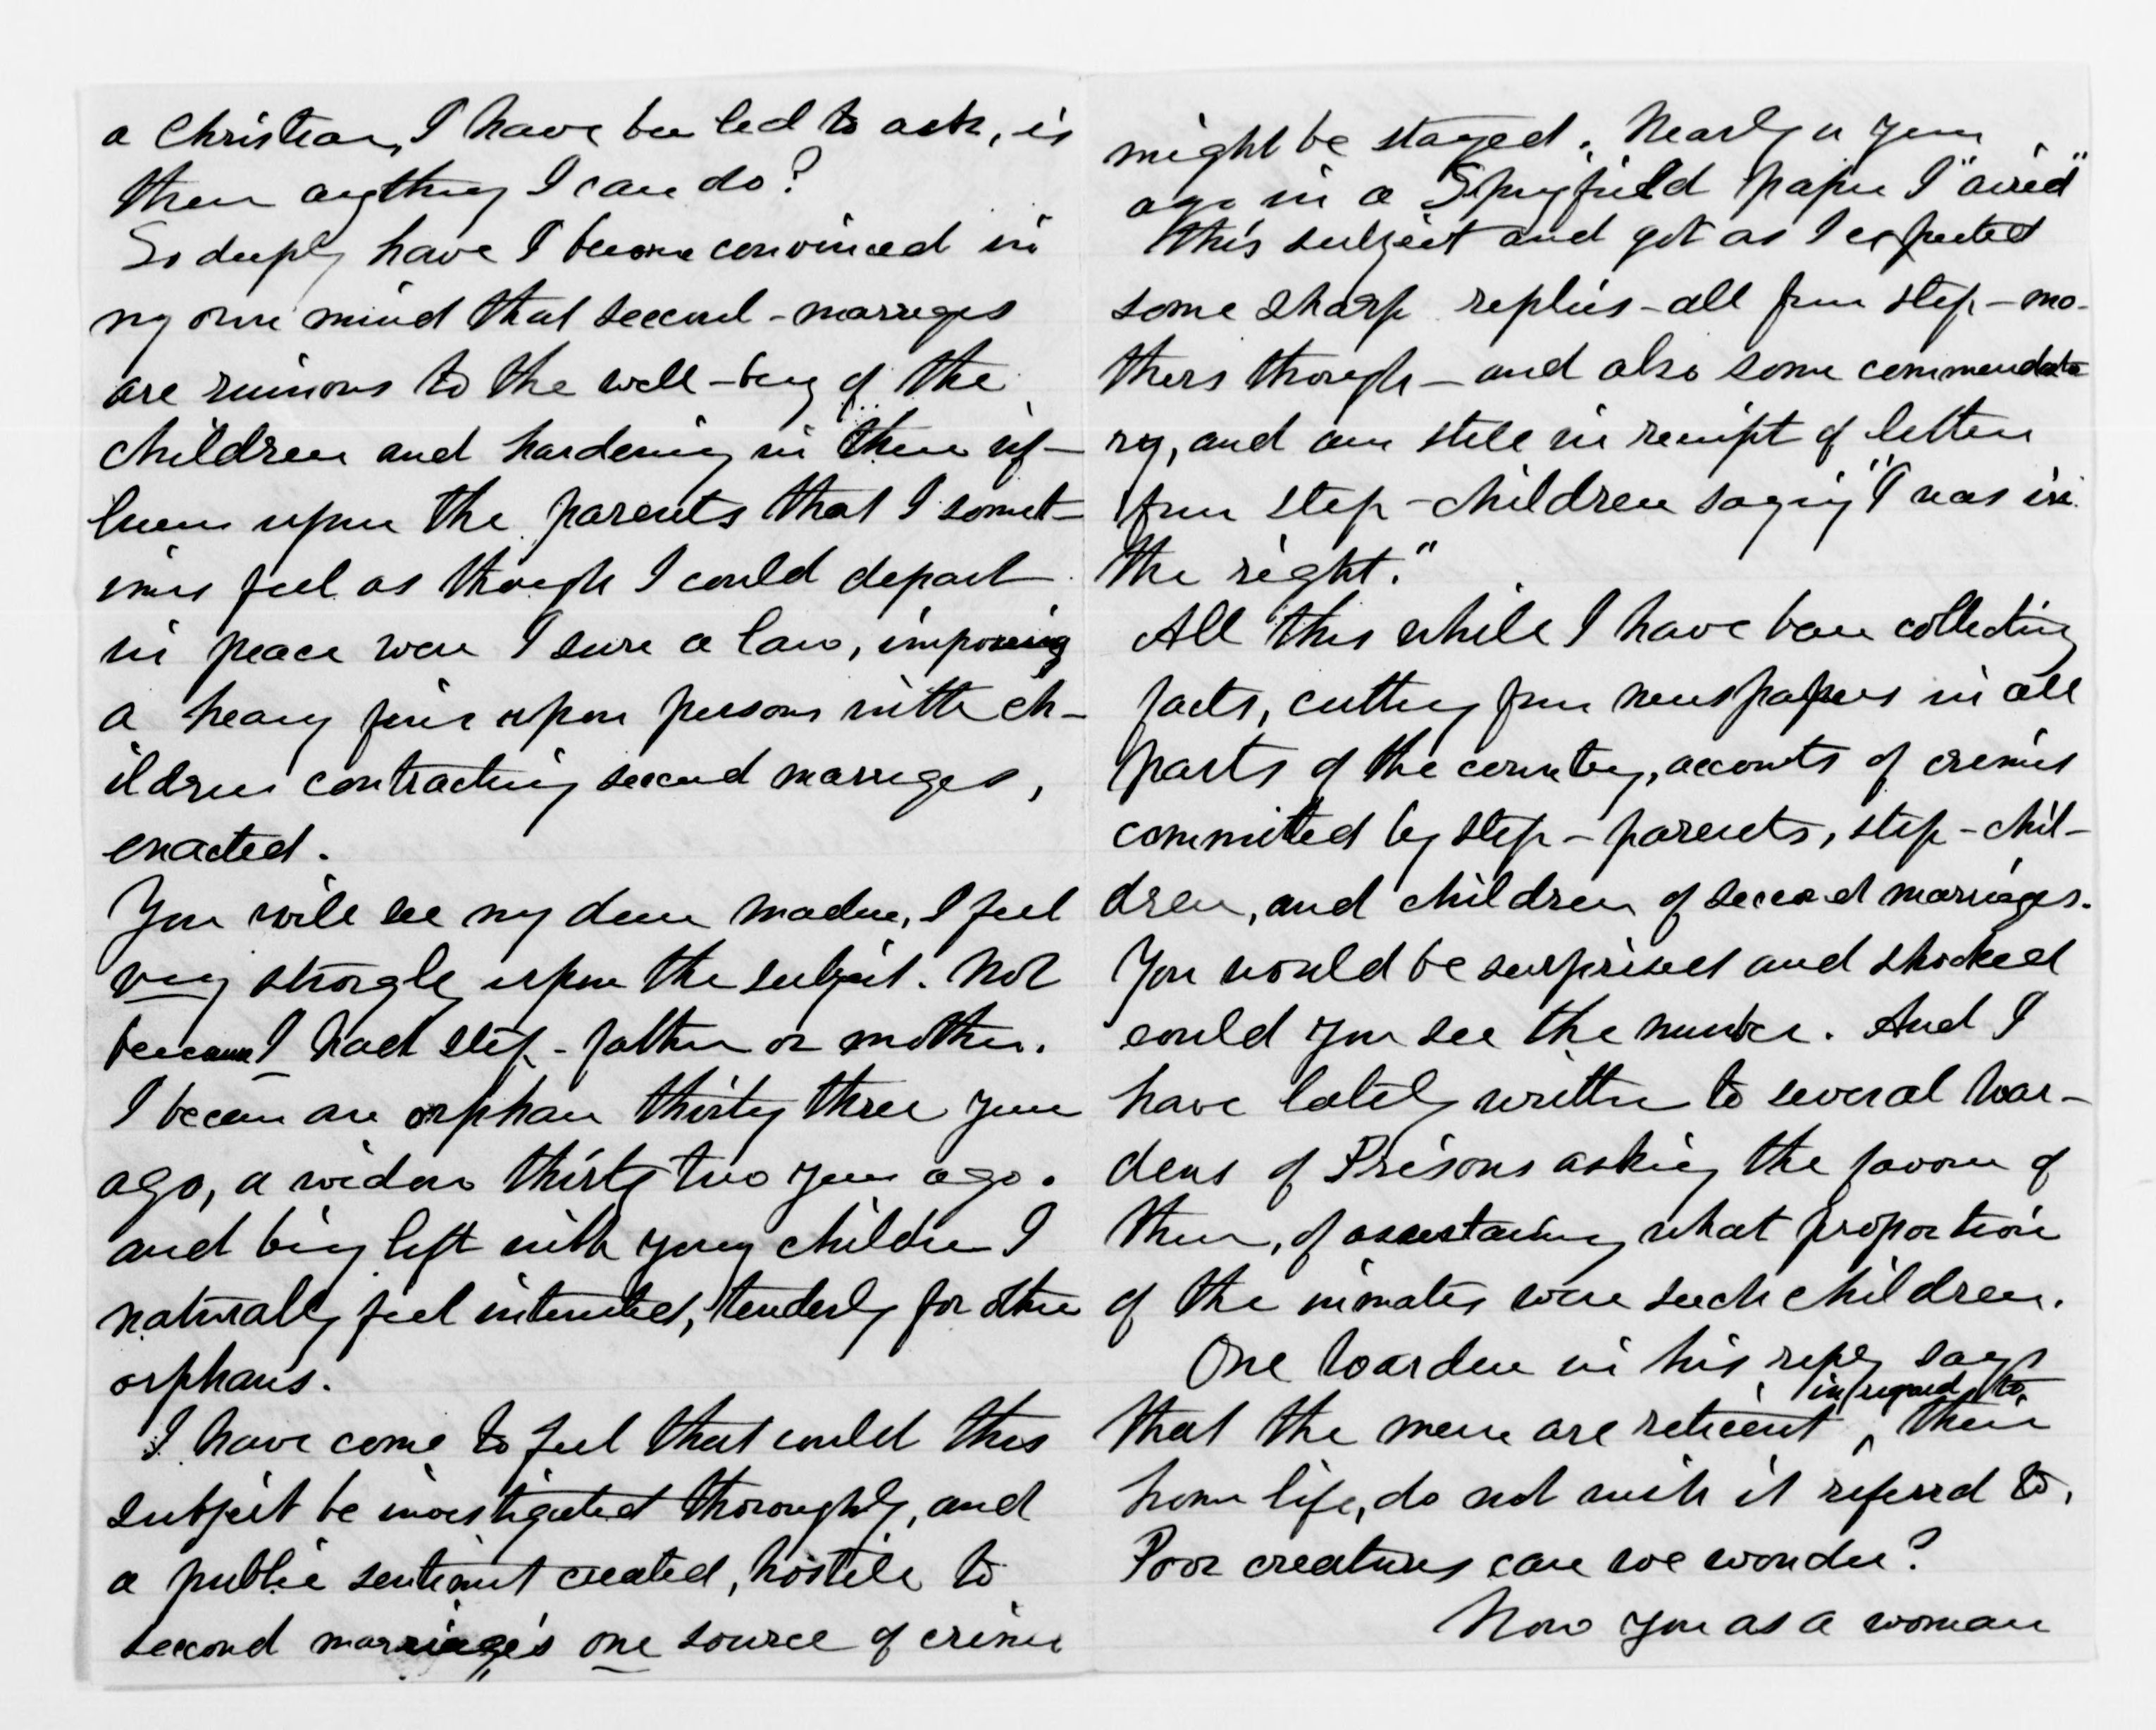 a Christian, I have been led to ask, is
there anything I can do?
So deeply have I become convinced in
my own mind that second-marriages
are ruinous to the well-being of the
children and hardening in their inf-
luence upon the parents that I somet-
imes feel as though I could depart
in peace were I sure a law, imposing
a heavy fine upon persons with ch-
ildren contracting second marriages,
enacted.
You will see my dear madam, I feel
very strongly upon the subject. Not
because I had step-father or mother.
I became an orphan thirty three years
ago, a widow thirty two years ago.
and being left with young children I
naturally feel interested, tenderly for other
orphans.
I have come to feel that could this
subject be investigated thoroughly, and
a public sentiment created, hostile to
second marriages one source of crime
might be stayed. Nearly a year
ago in a Springfield paper I "aired"
this subject and got as I expected
some sharp replies - all from step-mo-
thers though - and also some commendato
ry, and am still in receipt of letters
from step-children saying "I was in
the right."
All this while I have been collecting
facts, cutting from newspapers in all
parts of the country, accounts of crimes
committed by step-parents, step-chil-
dren, and children of second marriages.
You would be surprised and shocked
could you see the number. And I
have lately written to several War-
dens of Prisons asking the favour of
them, of ascertaining what proportion
of the inmates were such children.
One Warden in his reply says
that the men are reticent in regard to their
home life, do not wish it referred to.
Poor creatures can we wonder?
Now you as a woman